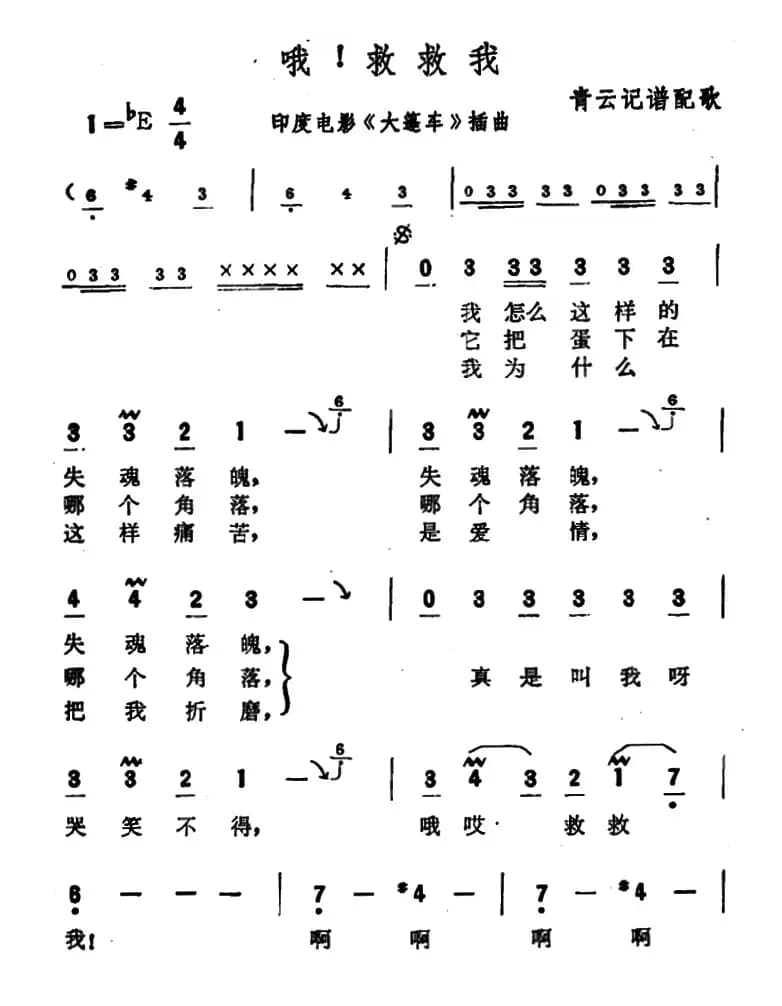 哦！救救我
1=♭E 4/4
印度电影《大篷车》插曲
青云记谱配歌
( 6 #4 3 | 6 4 3 | 0 3 3 3 3 0 3 3 3 3 |
0 3 3 3 3 × × × × × × | 0 3 3 3 3 3 3 |
我 怎么 这 样 的
它 把 蛋 下 在
我 为 什 么
3 3 2 1 — 6 | 3 3 2 1 — 6 |
失 魂 落 魄， 失 魂 落 魄，
哪 个 角 落， 哪 个 角 落，
这 样 痛 苦， 是 爱 情，
4 4 2 3 — | 0 3 3 3 3 3 |
失 魂 落 魄，
哪 个 角 落， 真 是 叫 我 呀
把 我 折 磨，
3 3 2 1 — 6 | 3 4 3 2 1 7 |
哭 笑 不 得， 哦 哎· 救 救
6 — — — | 7 — #4 — | 7 — #4 — |
我！ 啊 啊 啊 啊